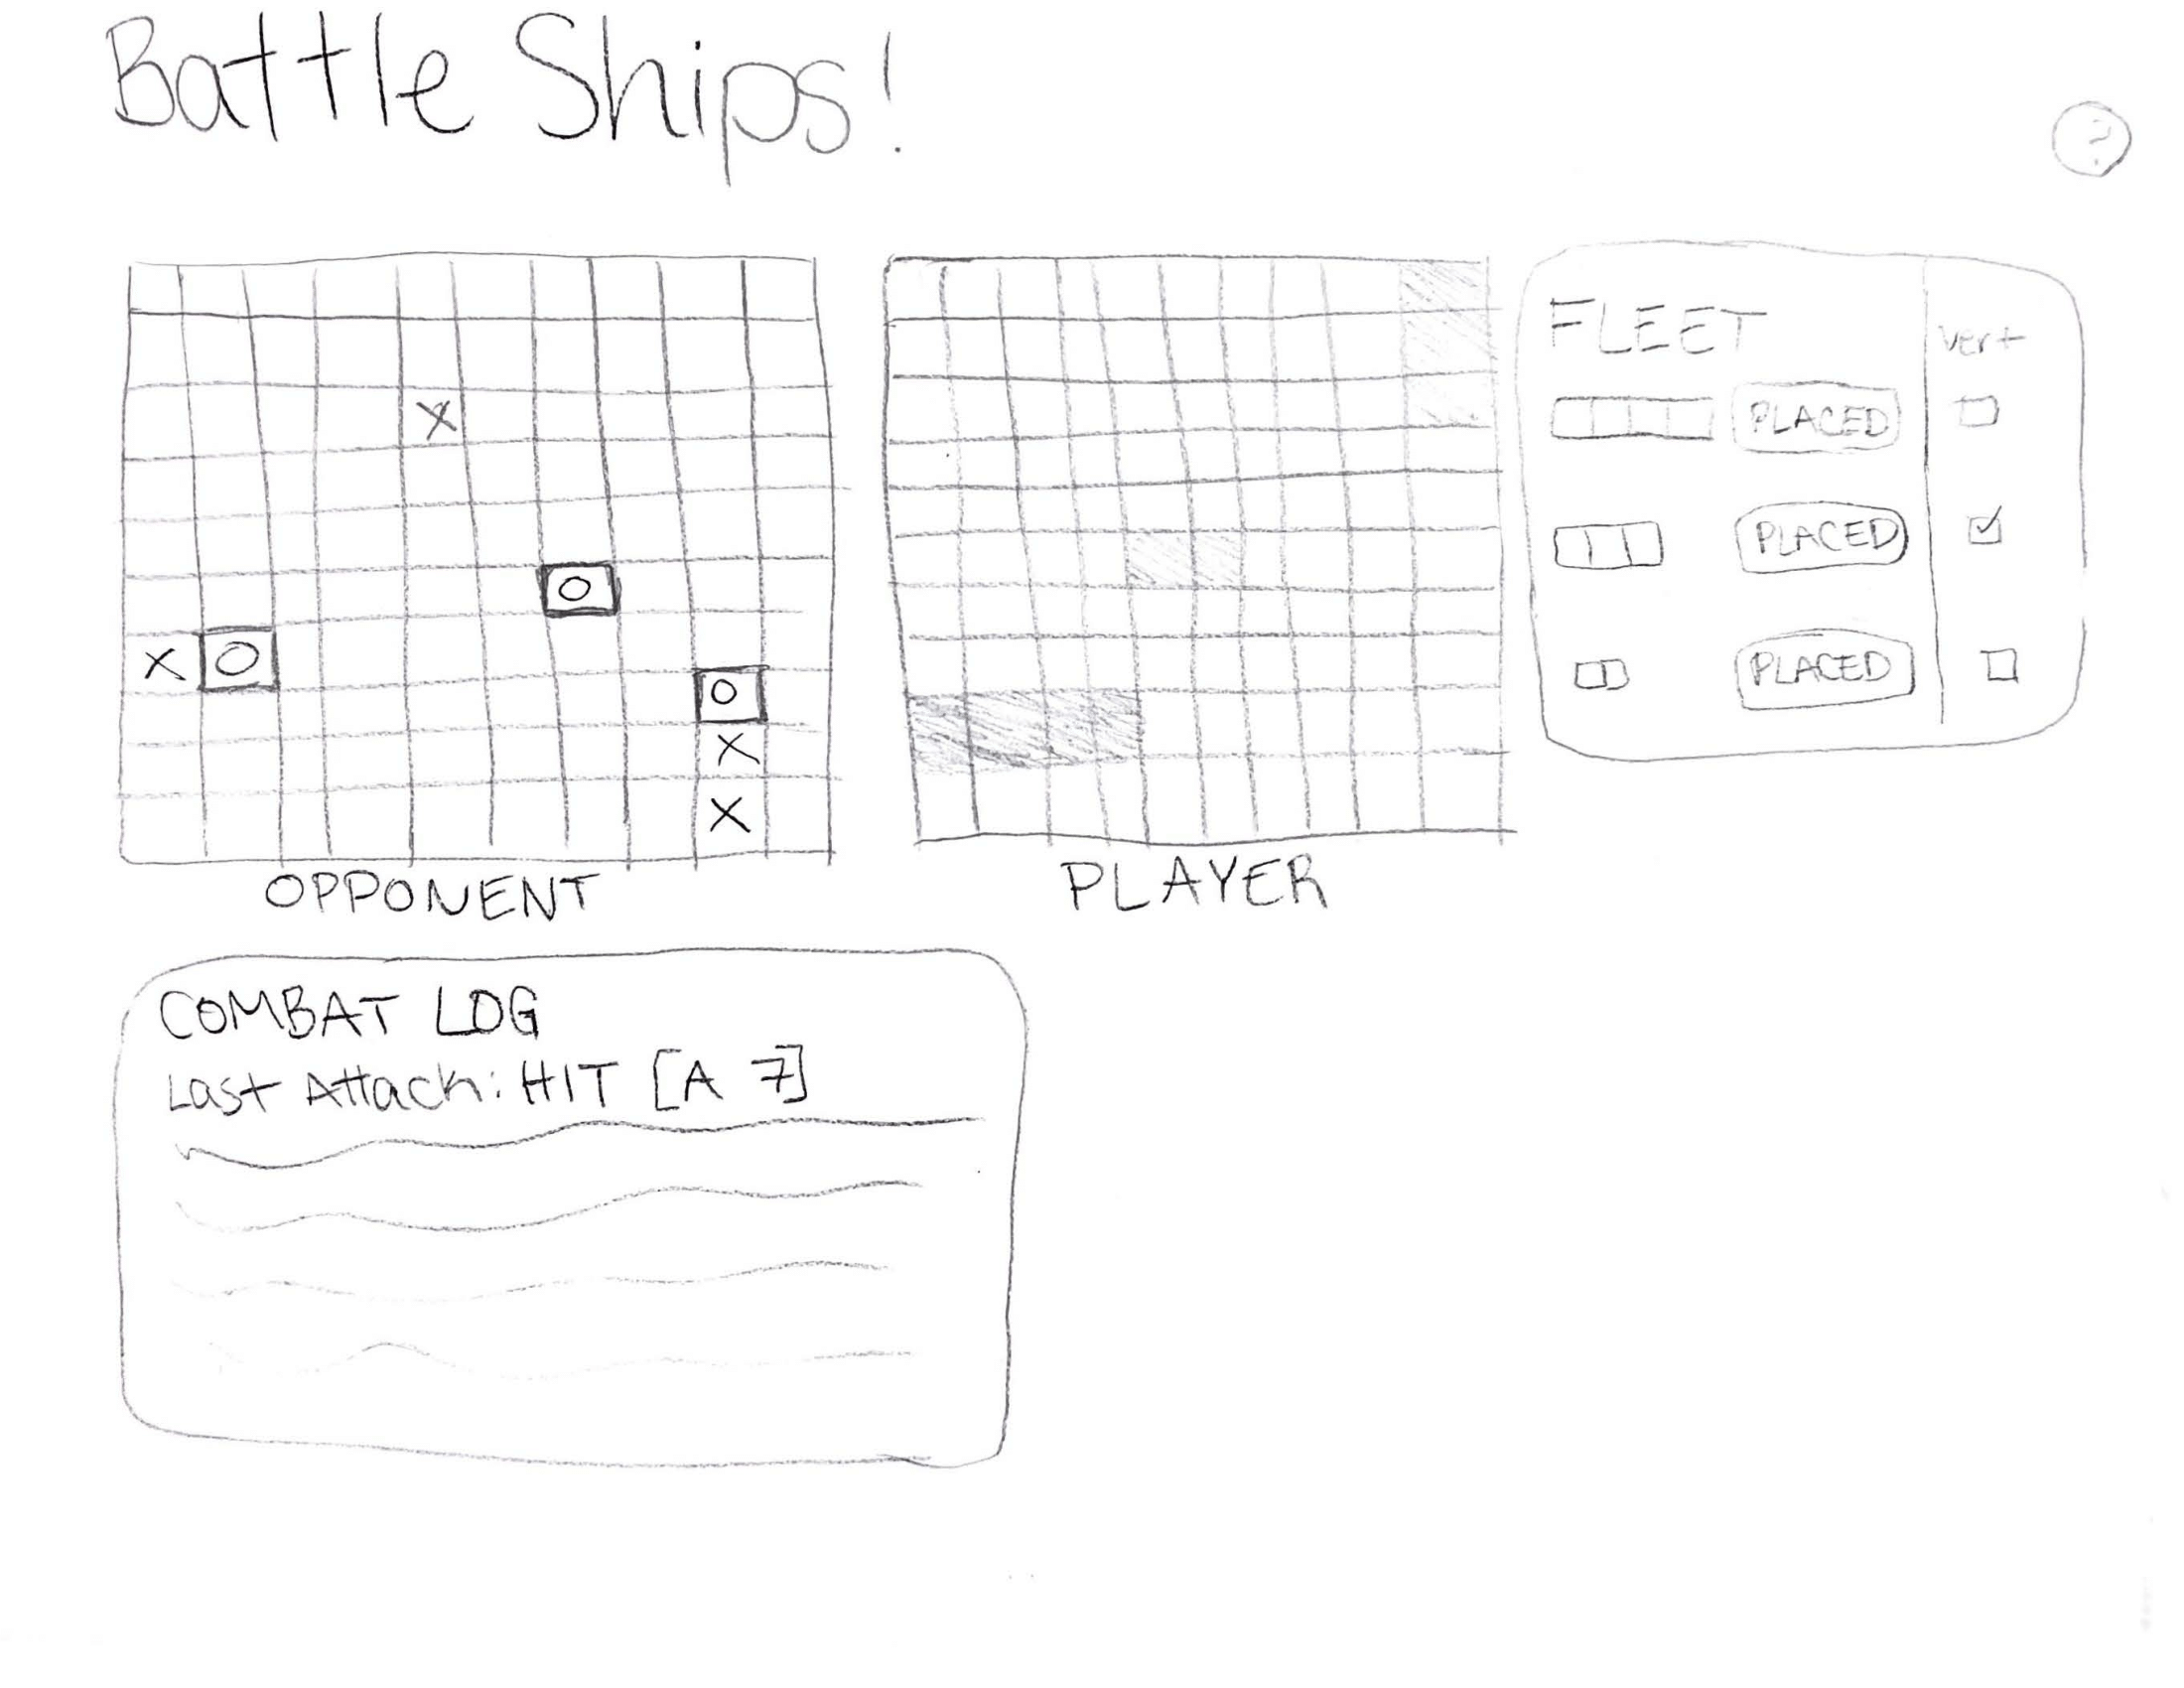 Battle Ships!
?
X
O
X O
O
X
X
OPPONENT
PLAYER
FLEET vert
PLACED
PLACED
PLACED
COMBAT LOG
Last Attack: HIT [A 7]